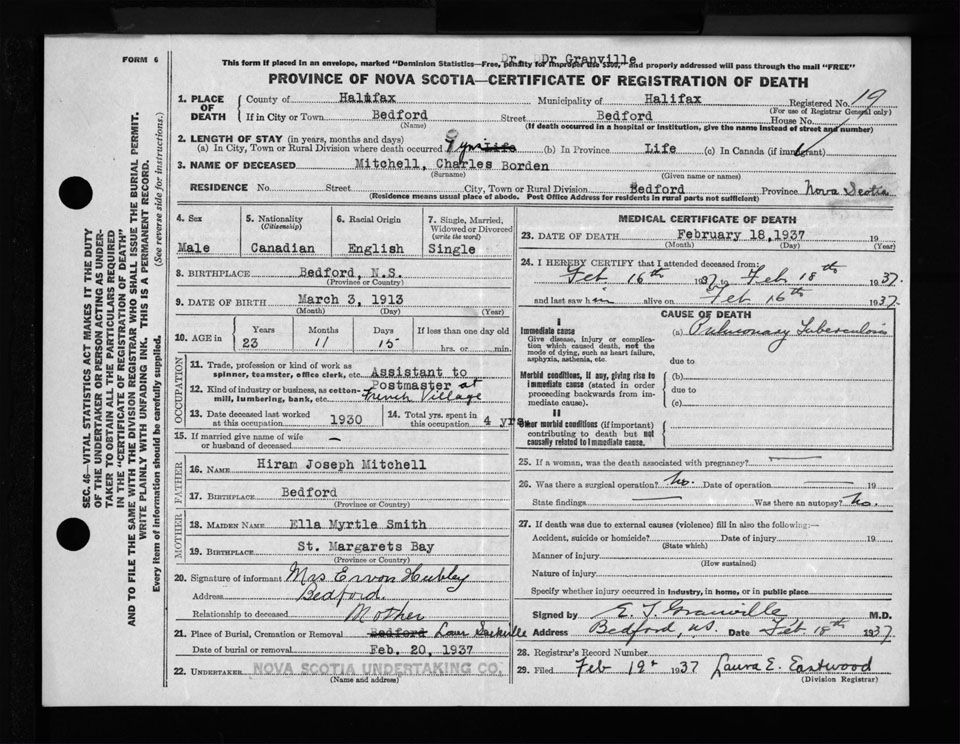 FORM 6
This form if placed in an envelope, marked "Dominion Statistics—Free, penalty for improper use $300," and properly addressed will pass through the mail "FREE"
Dr. Dr Granville
PROVINCE OF NOVA SCOTIA—CERTIFICATE OF REGISTRATION OF DEATH
1. PLACE OF DEATH County of Halifax Municipality of Halifax Registered No. 19
(For use of Registrar General only)
If in City or Town Bedford Street Bedford House No.
(Name) (If death occurred in a hospital or institution, give the name instead of street and number)
2. LENGTH OF STAY (in years, months and days)
(a) In City, Town or Rural Division where death occurred 9 yrs Life (b) In Province Life (c) In Canada (if immigrant)
3. NAME OF DECEASED Mitchell, Charles Borden
(Surname) (Given name or names)
RESIDENCE No. Street City, Town or Rural Division Bedford Province Nova Scotia
(Residence means usual place of abode. Post Office Address for residents in rural parts not sufficient)
4. Sex Male
5. Nationality (Citizenship) Canadian
6. Racial Origin English
7. Single, Married, Widowed or Divorced (write the word) Single
8. BIRTHPLACE Bedford, N.S.
(Province or Country)
9. DATE OF BIRTH March 3, 1913
(Month) (Day) (Year)
10. AGE in Years 23 Months 11 Days 15 If less than one day old hrs. or min.
OCCUPATION
11. Trade, profession or kind of work as spinner, teamster, office clerk, etc. Assistant to
12. Kind of industry or business, as cotton-mill, lumbering, bank, etc. Postmaster at French Village
13. Date deceased last worked at this occupation 1930
14. Total yrs. spent in this occupation 4 yrs
15. If married give name of wife or husband of deceased —
FATHER
16. NAME Hiram Joseph Mitchell
17. BIRTHPLACE Bedford
(Province or Country)
MOTHER
18. MAIDEN NAME Ella Myrtle Smith
19. BIRTHPLACE St. Margarets Bay
(Province or Country)
20. Signature of informant Mrs Ervon Hubley
Address Bedford.
Relationship to deceased Mother
21. Place of Burial, Cremation or Removal Bedford Lower Sackville
Date of burial or removal Feb. 20, 1937
22. UNDERTAKER NOVA SCOTIA UNDERTAKING CO.
(Name and address)
MEDICAL CERTIFICATE OF DEATH
23. DATE OF DEATH February 18, 1937 19
(Month) (Day) (Year)
24. I HEREBY CERTIFY that I attended deceased from:
Feb 16th 1937 to Feb 18th 1937.
and last saw him alive on Feb 16th 1937.
CAUSE OF DEATH
I
Immediate cause (a) Pulmonary Tuberculosis
Give disease, injury or complication which caused death, not the mode of dying, such as heart failure, asphyxia, asthenia, etc.
due to
Morbid conditions, if any, giving rise to immediate cause (stated in order proceeding backwards from immediate cause).
(b)
due to
(c)
II
Other morbid conditions (if important) contributing to death but not causally related to immediate cause.
25. If a woman, was the death associated with pregnancy? —
26. Was there a surgical operation? No. Date of operation — 19
State findings — Was there an autopsy? No.
27. If death was due to external causes (violence) fill in also the following:—
Accident, suicide or homicide? Date of injury 19
(State which)
Manner of injury
(How sustained)
Nature of injury
Specify whether injury occurred in Industry, in home, or in public place
Signed by E. T. Granville M.D.
Address Bedford, N.S. Date Feb. 18th 1937.
28. Registrar's Record Number
29. Filed Feb 19th 1937 Laura E. Eastwood
(Division Registrar)
SEC. 46—VITAL STATISTICS ACT MAKES IT THE DUTY
OF THE UNDERTAKER OR PERSON ACTING AS UNDER-
TAKER TO OBTAIN ALL THE PARTICULARS REQUIRED
IN THE "CERTIFICATE OF REGISTRATION OF DEATH"
AND TO FILE THE SAME WITH THE DIVISION REGISTRAR WHO SHALL ISSUE THE BURIAL PERMIT.
WRITE PLAINLY WITH UNFADING INK. THIS IS A PERMANENT RECORD.
Every item of information should be carefully supplied. (See reverse side for instructions.)